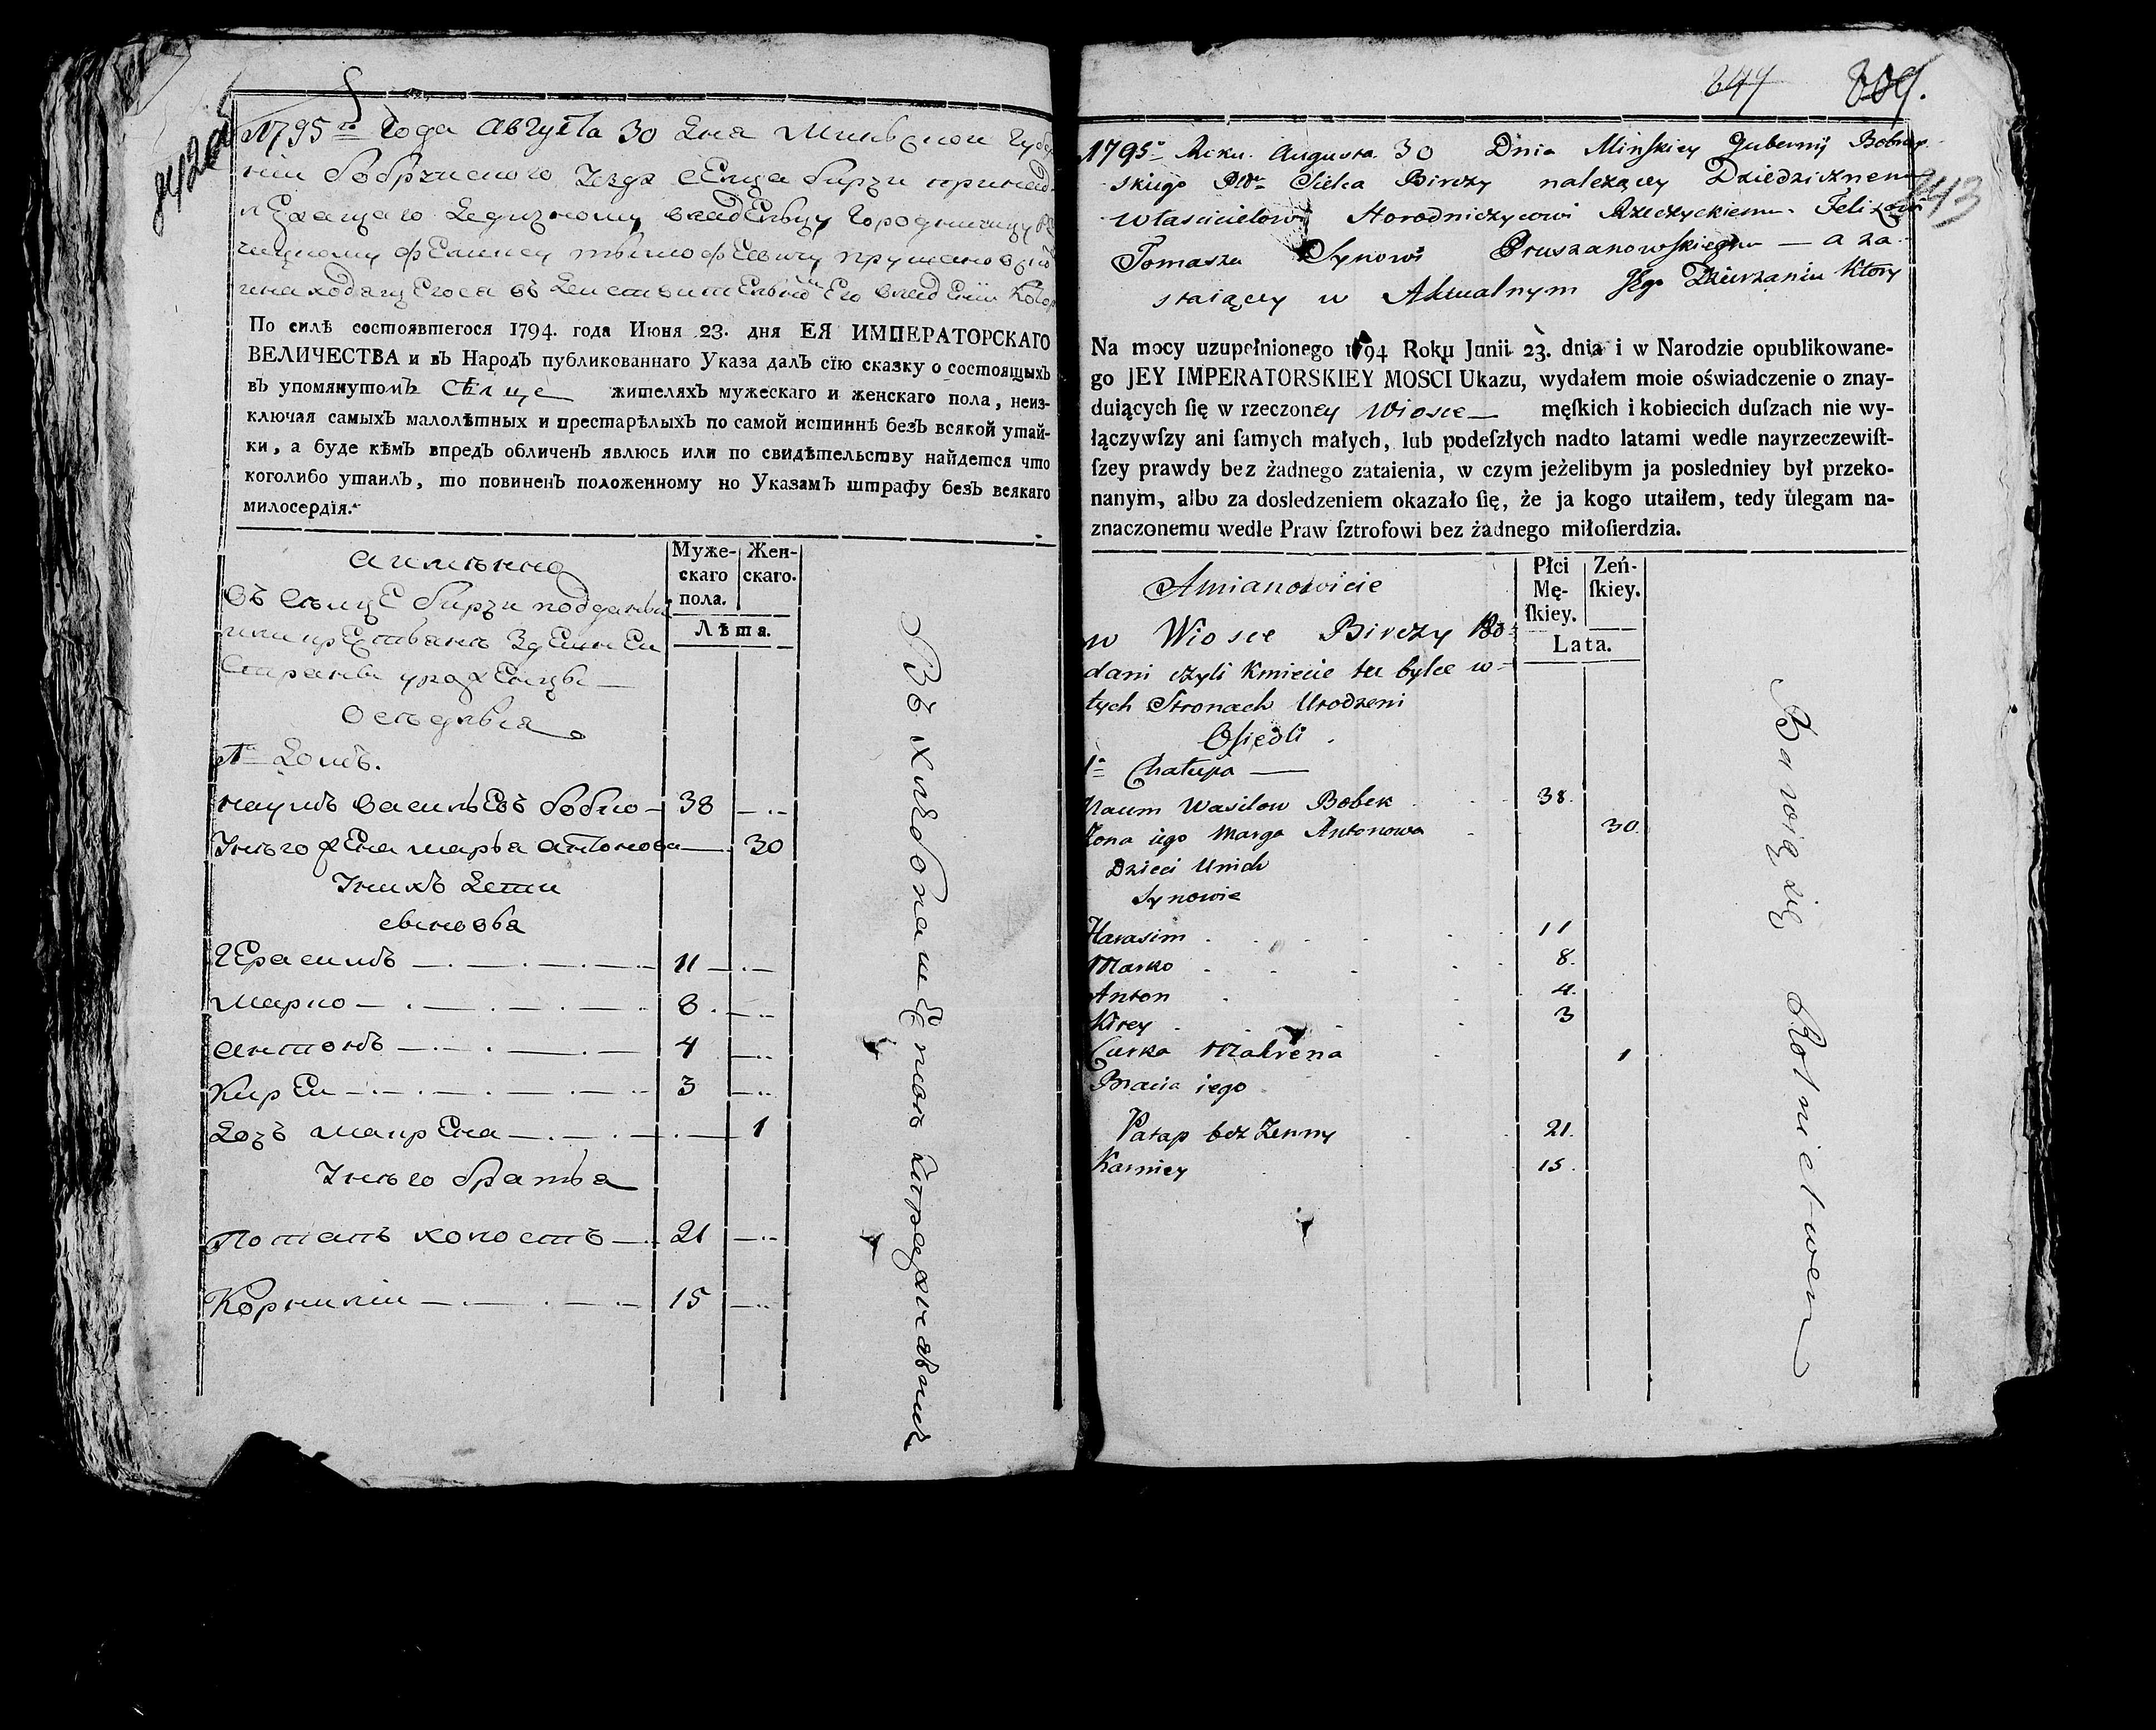 1795го Года Августа 30 Дня Минъской Губер
ніи бобруиского уезда сЕлца бирчи принад
лЕжащаго Дедизному владЕльцу Городничицу
находящЕгося въ деиствитЕльномъ Его владЕніи Котор
По силѣ состоявшегося 1794. года Июня 23. дня ЕЯ ИМПЕРАТОРСКАГО
ВЕЛИЧЕСТВА и въ Народъ публикованнаго Указа далъ сїю сказку о состоящыхъ
въ упомянутомъ Селце жителяхъ мужескаго и женскаго пола, неиз-
ключая самыхъ малолѣтных и престарѣлыхъ по самой истиннѣ безъ всякой утай-
ки, а буде кѣмъ впредъ обличенъ явлюсь или по свидѣтельству найдется что
коголибо утаилъ, то повиненъ положенному по Указамъ штрафу безъ всякаго
милосердїя.
аимянно
въ селцЕ бирчи подданыя
или крЕстьянЕ здЕшнЕи
страны урожЕнцы
оседлыя
1й Домъ.
Муже-
скаго
пола.
Жен-
скаго.
Лѣта.
наумъ василЕвъ бобко 38
Унего жЕна марья антонова 30
Унихъ дети
сыновья
гЕрасимъ 11
марко 8
антонъ 4
КирЕи 3
дочъ макрЕна 1
Унего братья
Потапъ холостъ 21
Корнилiи 15
Въ хлебопашЕстве упражняются
247 309.
443
1795o Roku Augusta 30 Dnia Minſkiey Gubernij Bobruy
skiego Sielca Birczy należącey Dziedzicznemu
Właścicielowi Horodniczycowi Rzeczyckiemu Felixowi
Tomasza Synowi Pruszanowskiemu — a zo
staiącey w Aktualnym Jego Dzierżaniu Ktory
Na mocy uzupełnionego 1794 Roku Junii 23. dnia i w Narodzie opublikowane-
go JEY IMPERATORSKIEY MOSCI Ukazu, wydałem moie oświadczenie o znay-
duiących ſię w rzeczoney Wiosce męſkich i kobiecich duſzach nie wy-
łączywſzy ani ſamych małych, lub podeſzłych nadto latami wedle nayrzeczewiſt-
ſzey prawdy bez żadnego zataienia, w czym jeżelibym ja posledniey był przeko-
nanym, albo za dosledzeniem okazało ſię, że ja kogo utaiłem, tedy ulegam na-
znaczonemu wedle Praw ſztrofowi bez żadnego miłoſierdzia.
Amianowicie
w Wiosce Birczy Pod
dani czyli Kmiecie tu bylce w
tych Stronach Urodzeni
Osiedli.
1a Chałupa
Płci
Mę-
ſkiey.
Zeń-
ſkiey.
Lata.
Naum Wasilow Bobek 38.
Zona iego Marya Antonowa 30.
Dzieci Unich
Synowie
Harasim 11
Marko 8.
Anton 4.
Kirey 3
Curka Makrena 1
Bracia iego
Patap bez Zenny 21.
Karniey 15.
Bawią się Rolnictwem